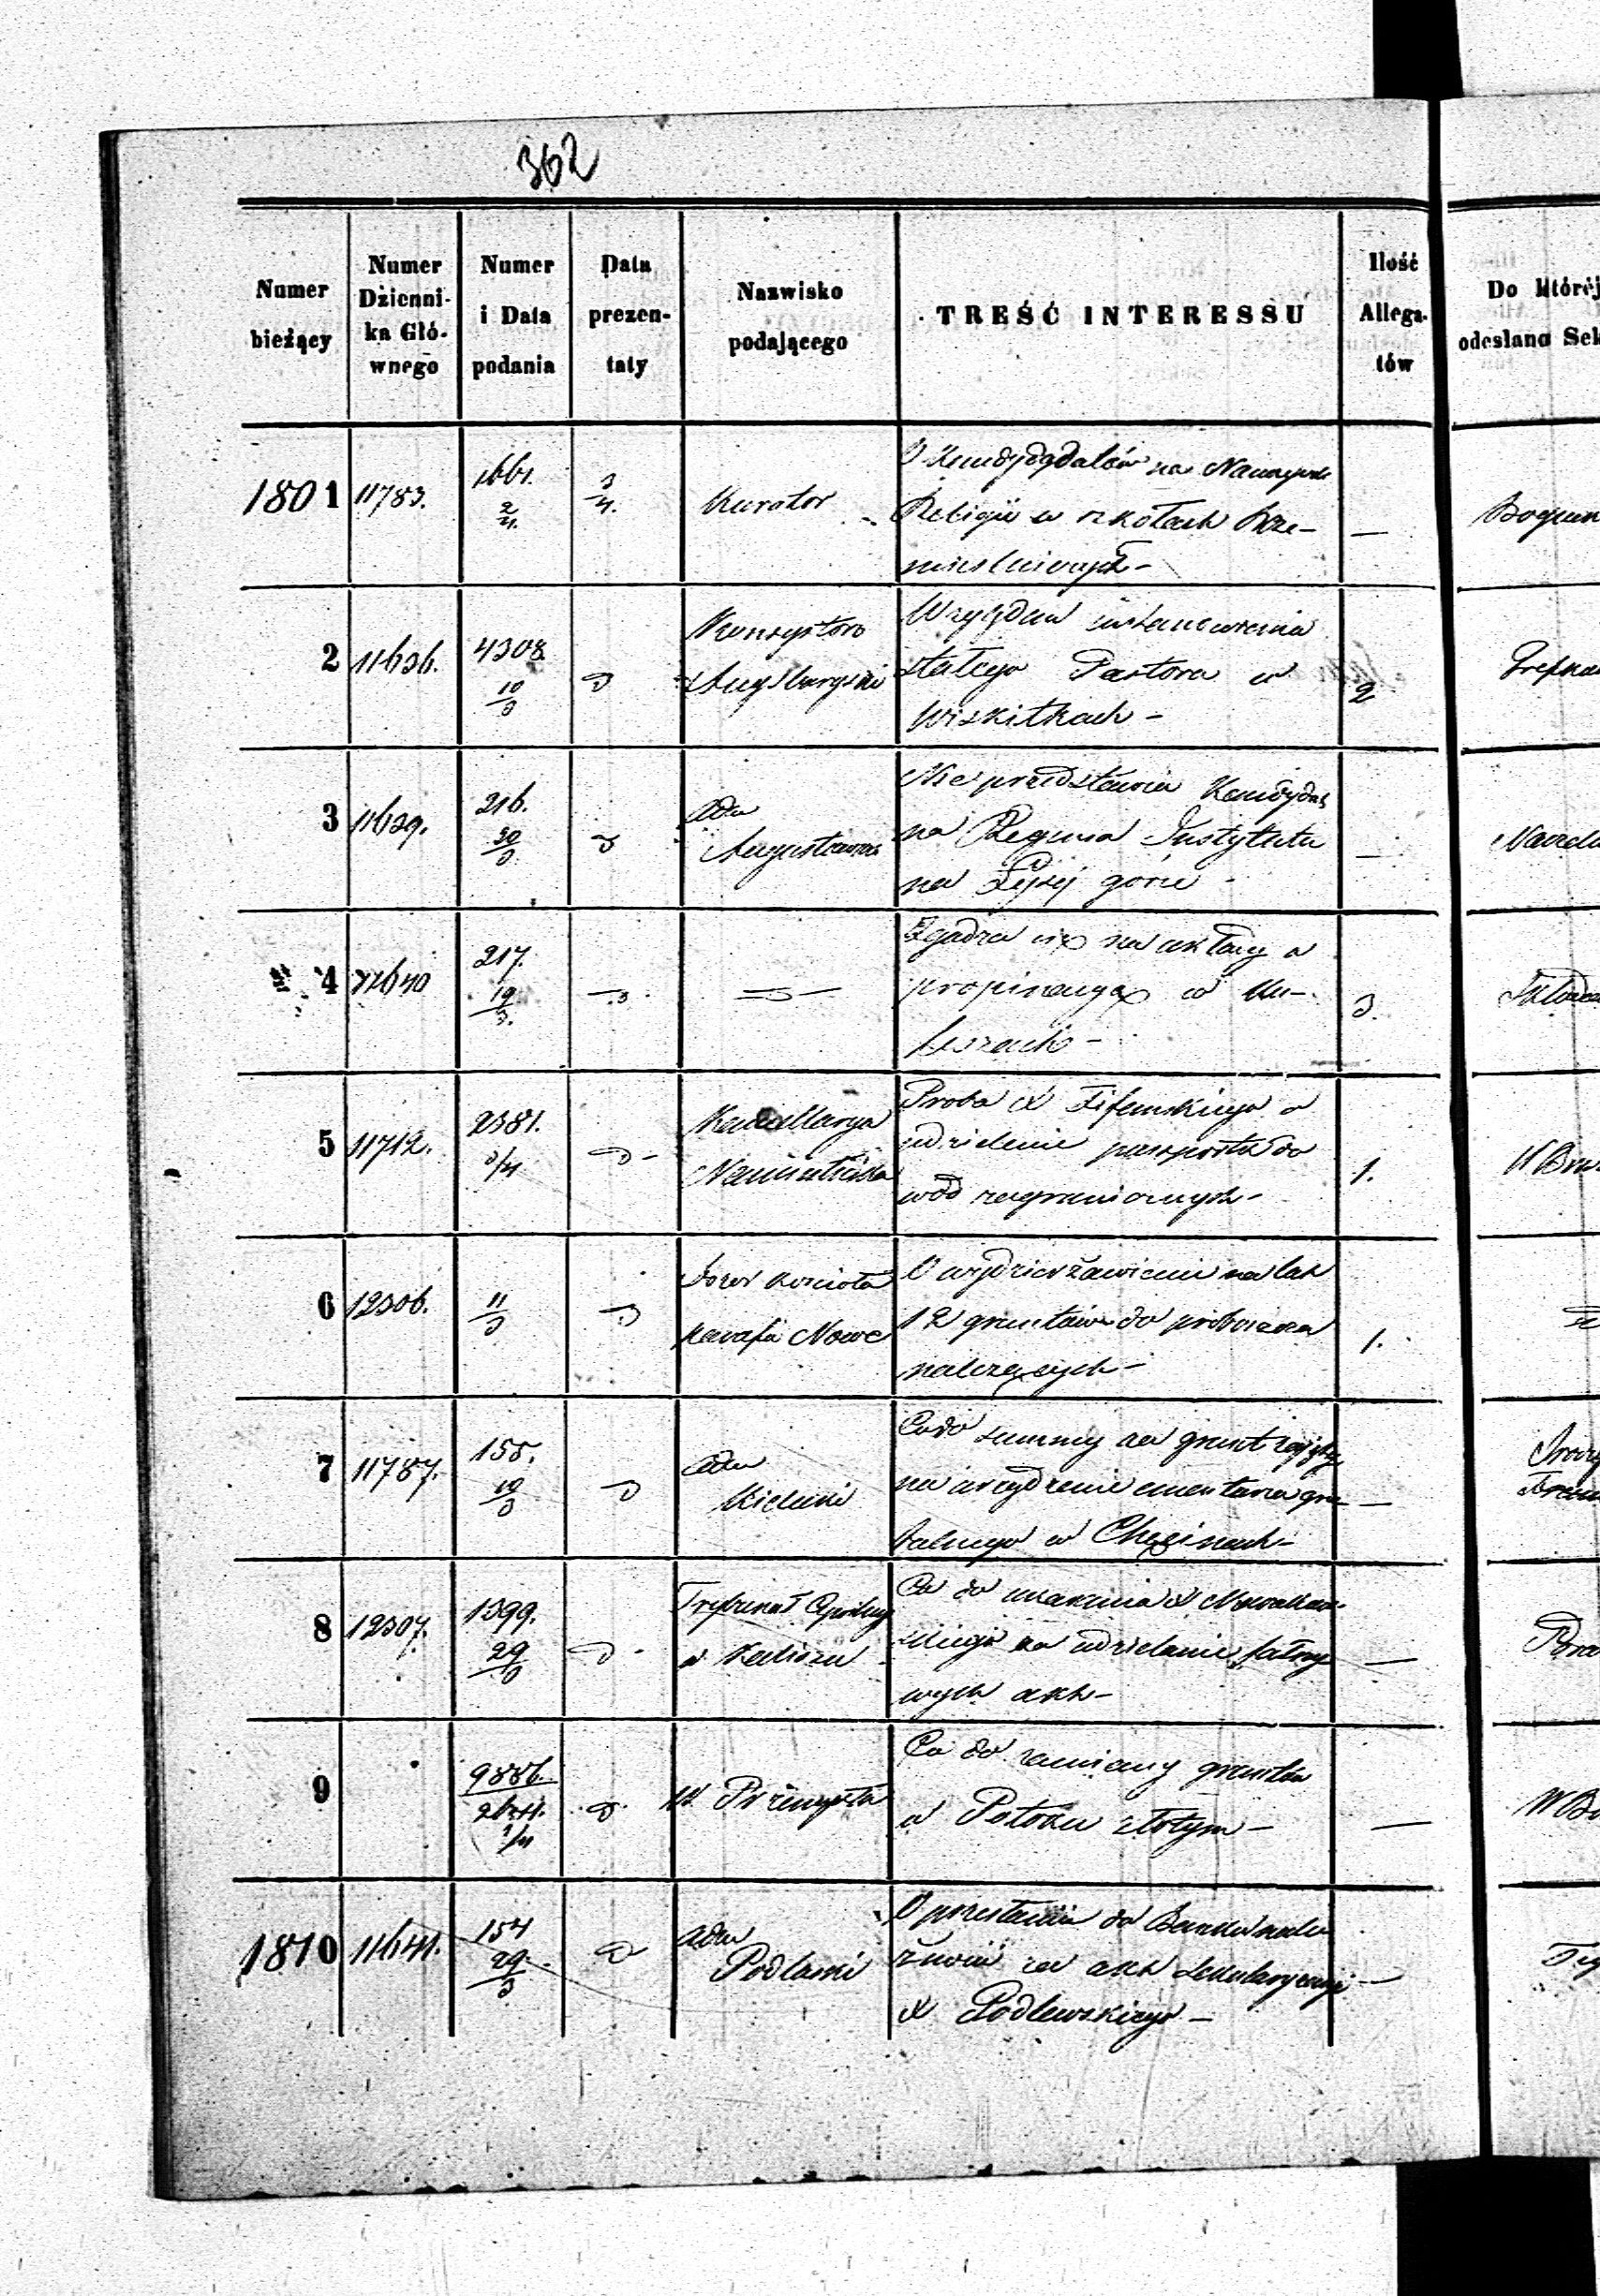 362
Numer bieżący
Numer Dzienni-ka Głó-wnego
Numer i Data podania
Data prezen-taty
Nazwisko podającego
TREŚĆ INTERESSU
Ilość Allega-tów
Do któréj odesłano Sek
1801 11783. 1661. 2/4. 3/4. Kurator
O Kandydatów na
Religii w szkołach Rze-
mieslniczych - —
2 11636. 4308. 10/3 Konsystorz Augsburgski
Względem ustanowienia
stałego Pastora w
Wiskitkach - 2
3 11639. 216. 30/3 Adm Augustowski
Nie przedstawia Kandydata
na Regensa Instytutu
na Łysej górze - —
4 11640 217. 19/3.
Zgadza się na układy o
propinacyą w
3.
5 11712. 2381. 3/4 Kancellarya Namiestnika
Prośba X o
udzielenie paszportu do
wód zagranicznych - 1.
W Br
6 12306. 11/3 Dozór Kościoła parafii Nowe
O wydzierżawienie na lat
12 gruntów do probostwa
należących - 1.
7 11787. 155. 19/3 Adm Kielecki
Co do summy za grunt zajęty
na urządzenie cmentarza grze-
balnego w Chęcinach - —
8 12307. 1399. 29/3 Trybunał Cywilny w Kaliszu
Co do ukarania X Nowakow-
skiego za udzielanie fałszy-
wych akt - —
9 9886. 2/4 W Przemysłu
Co do zamiany gruntów
w Potoku złotym - —
W Bo
1810 11641. 154 29/3 Adm Podlaski
O przesłaniu do Banku
za akt sekularyzacyi
X Podlewskiego - —